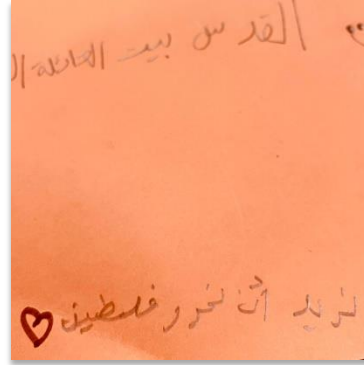 القدس بيت العائلة ال
نريد أن نحرر فلسطين